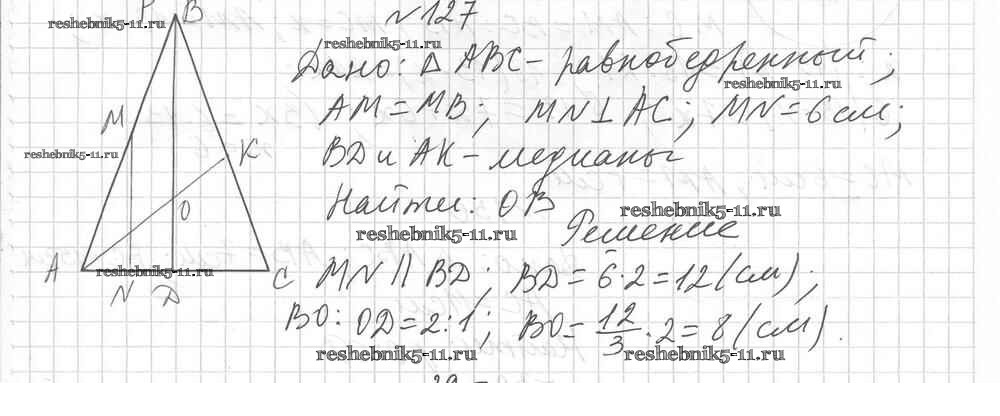 №127
Дано: Δ ABC - равнобедренный;
AM = MB; MN ⊥ AC; MN = 6 см;
BD и AK - медианы
Найти: OB
Решение
MN || BD; BD = 6·2 = 12 (см);
BO : OD = 2:1; BO = 12/3 · 2 = 8 (см).
B
M
K
O
A
N
D
C
reshebnik5-11.ru
reshebnik5-11.ru
reshebnik5-11.ru
reshebnik5-11.ru
reshebnik5-11.ru
reshebnik5-11.ru
reshebnik5-11.ru
reshebnik5-11.ru
reshebnik5-11.ru